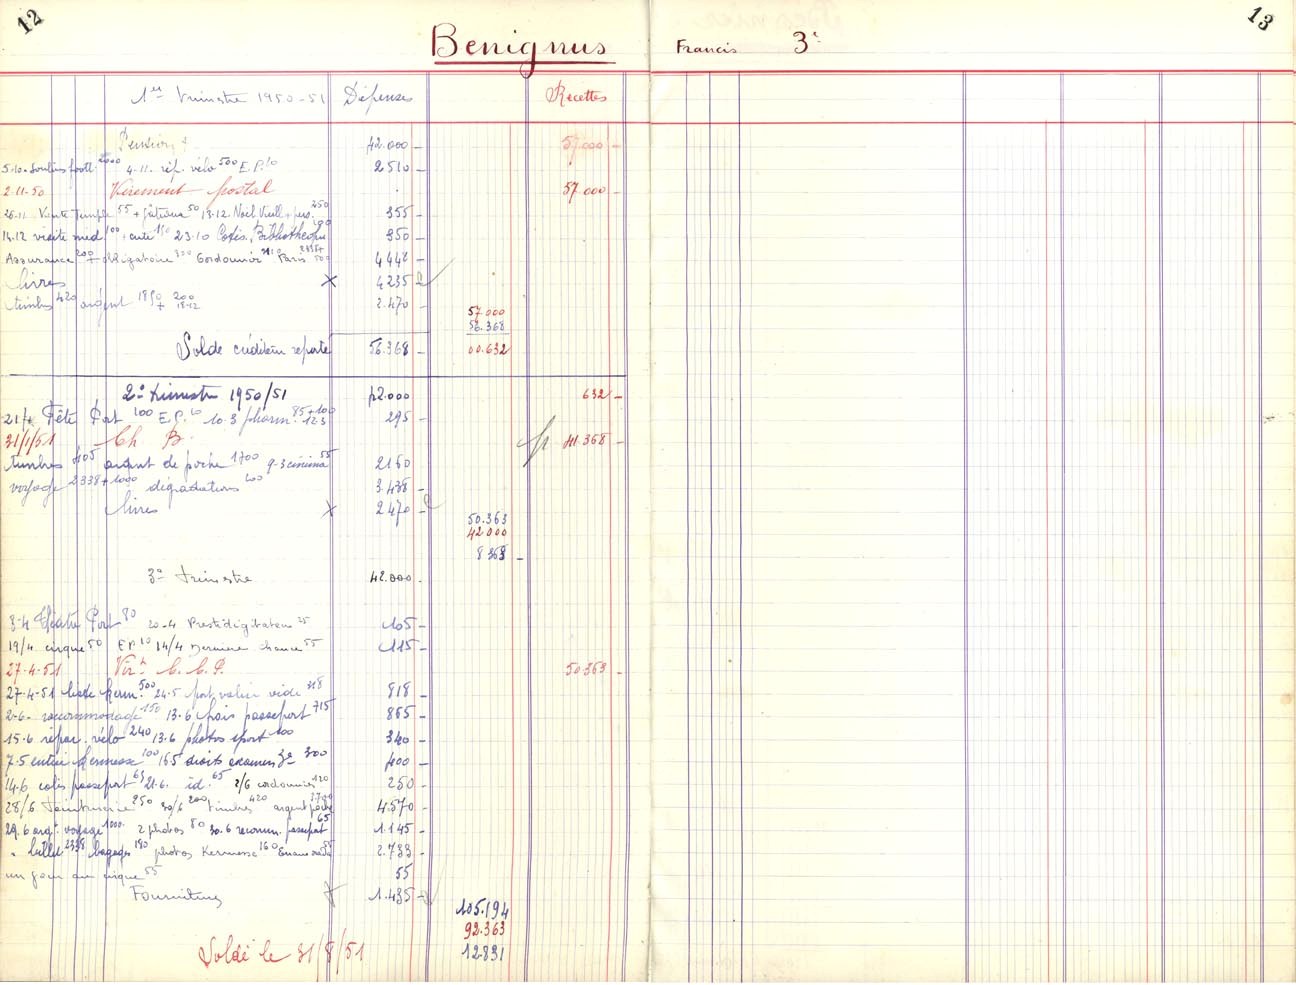 12
13
Benignus
Francis 3e
1er trimestre 1950-51 Dépenses Recettes
Pension 42.000 57.000
5.10. 2000 4.11. rép. vélo 500 E.P. 10 2510
2-11-50 Virement postal 57.000
26-11 Vente Temple 55 + 50 13-12. Noël Vieill + 250 355
14.12 visite med. 100 + 150 23.10 Cotis. Bibliothèque 100 350
Assurance 200 + obligatoire Cordonnier Paris
livres × 4235
timbres 420 argent 1850 + 200 18-12 2.470
57.000
56.368
Solde créditeur reporté 56.368 00.632
2e trimestre 1950/51 42.000 632
21/4 Fête Port 100 E.P. 10 10-3 pharm. 85+100 12.3 295
31/1/51 Ch. B. 41.368
timbres 405 argent de poche 1700 9-3 cinéma 55 2160
voyage 2338+1000 dégradations 100 3.438
livres × 2470
50.363
42.000
8363
3e trimestre 42.000
3-4 Théâtre Port 80 20-4 Prestidigitateur 25 105
19/4 cirque 50 E.P. 10 14/4 Dernière chance 55 115
27-4-51 Virt C.C.P. 50.363
27-4-51 liste Kerm. 500 24.5 port valise vide 318 818
2-6- raccommodage 150 13.6 frais passeport 715 865
15-6 répar. vélo 240 13.6 photos sport 100 340
7.5 entrée Kermesse 100 16.5 droits examens 3e 300 400
14.6 colis passeport 65 21.6. id. 65 2/6 cordonnier 120 250
28/6 teinturerie 250 30/6 200 timbres 420 argent poche 4.570
29.6 argt voyage 1000 2 photos 80 30.6 recomm. passeport 65 1.145
" billet 2338 bagages 180 photos Kermesse 160 55 2.733
un jour au cirque 55 55
Fournitures 1.435
105.194
92.363
12.831
Soldé le 31/8/51